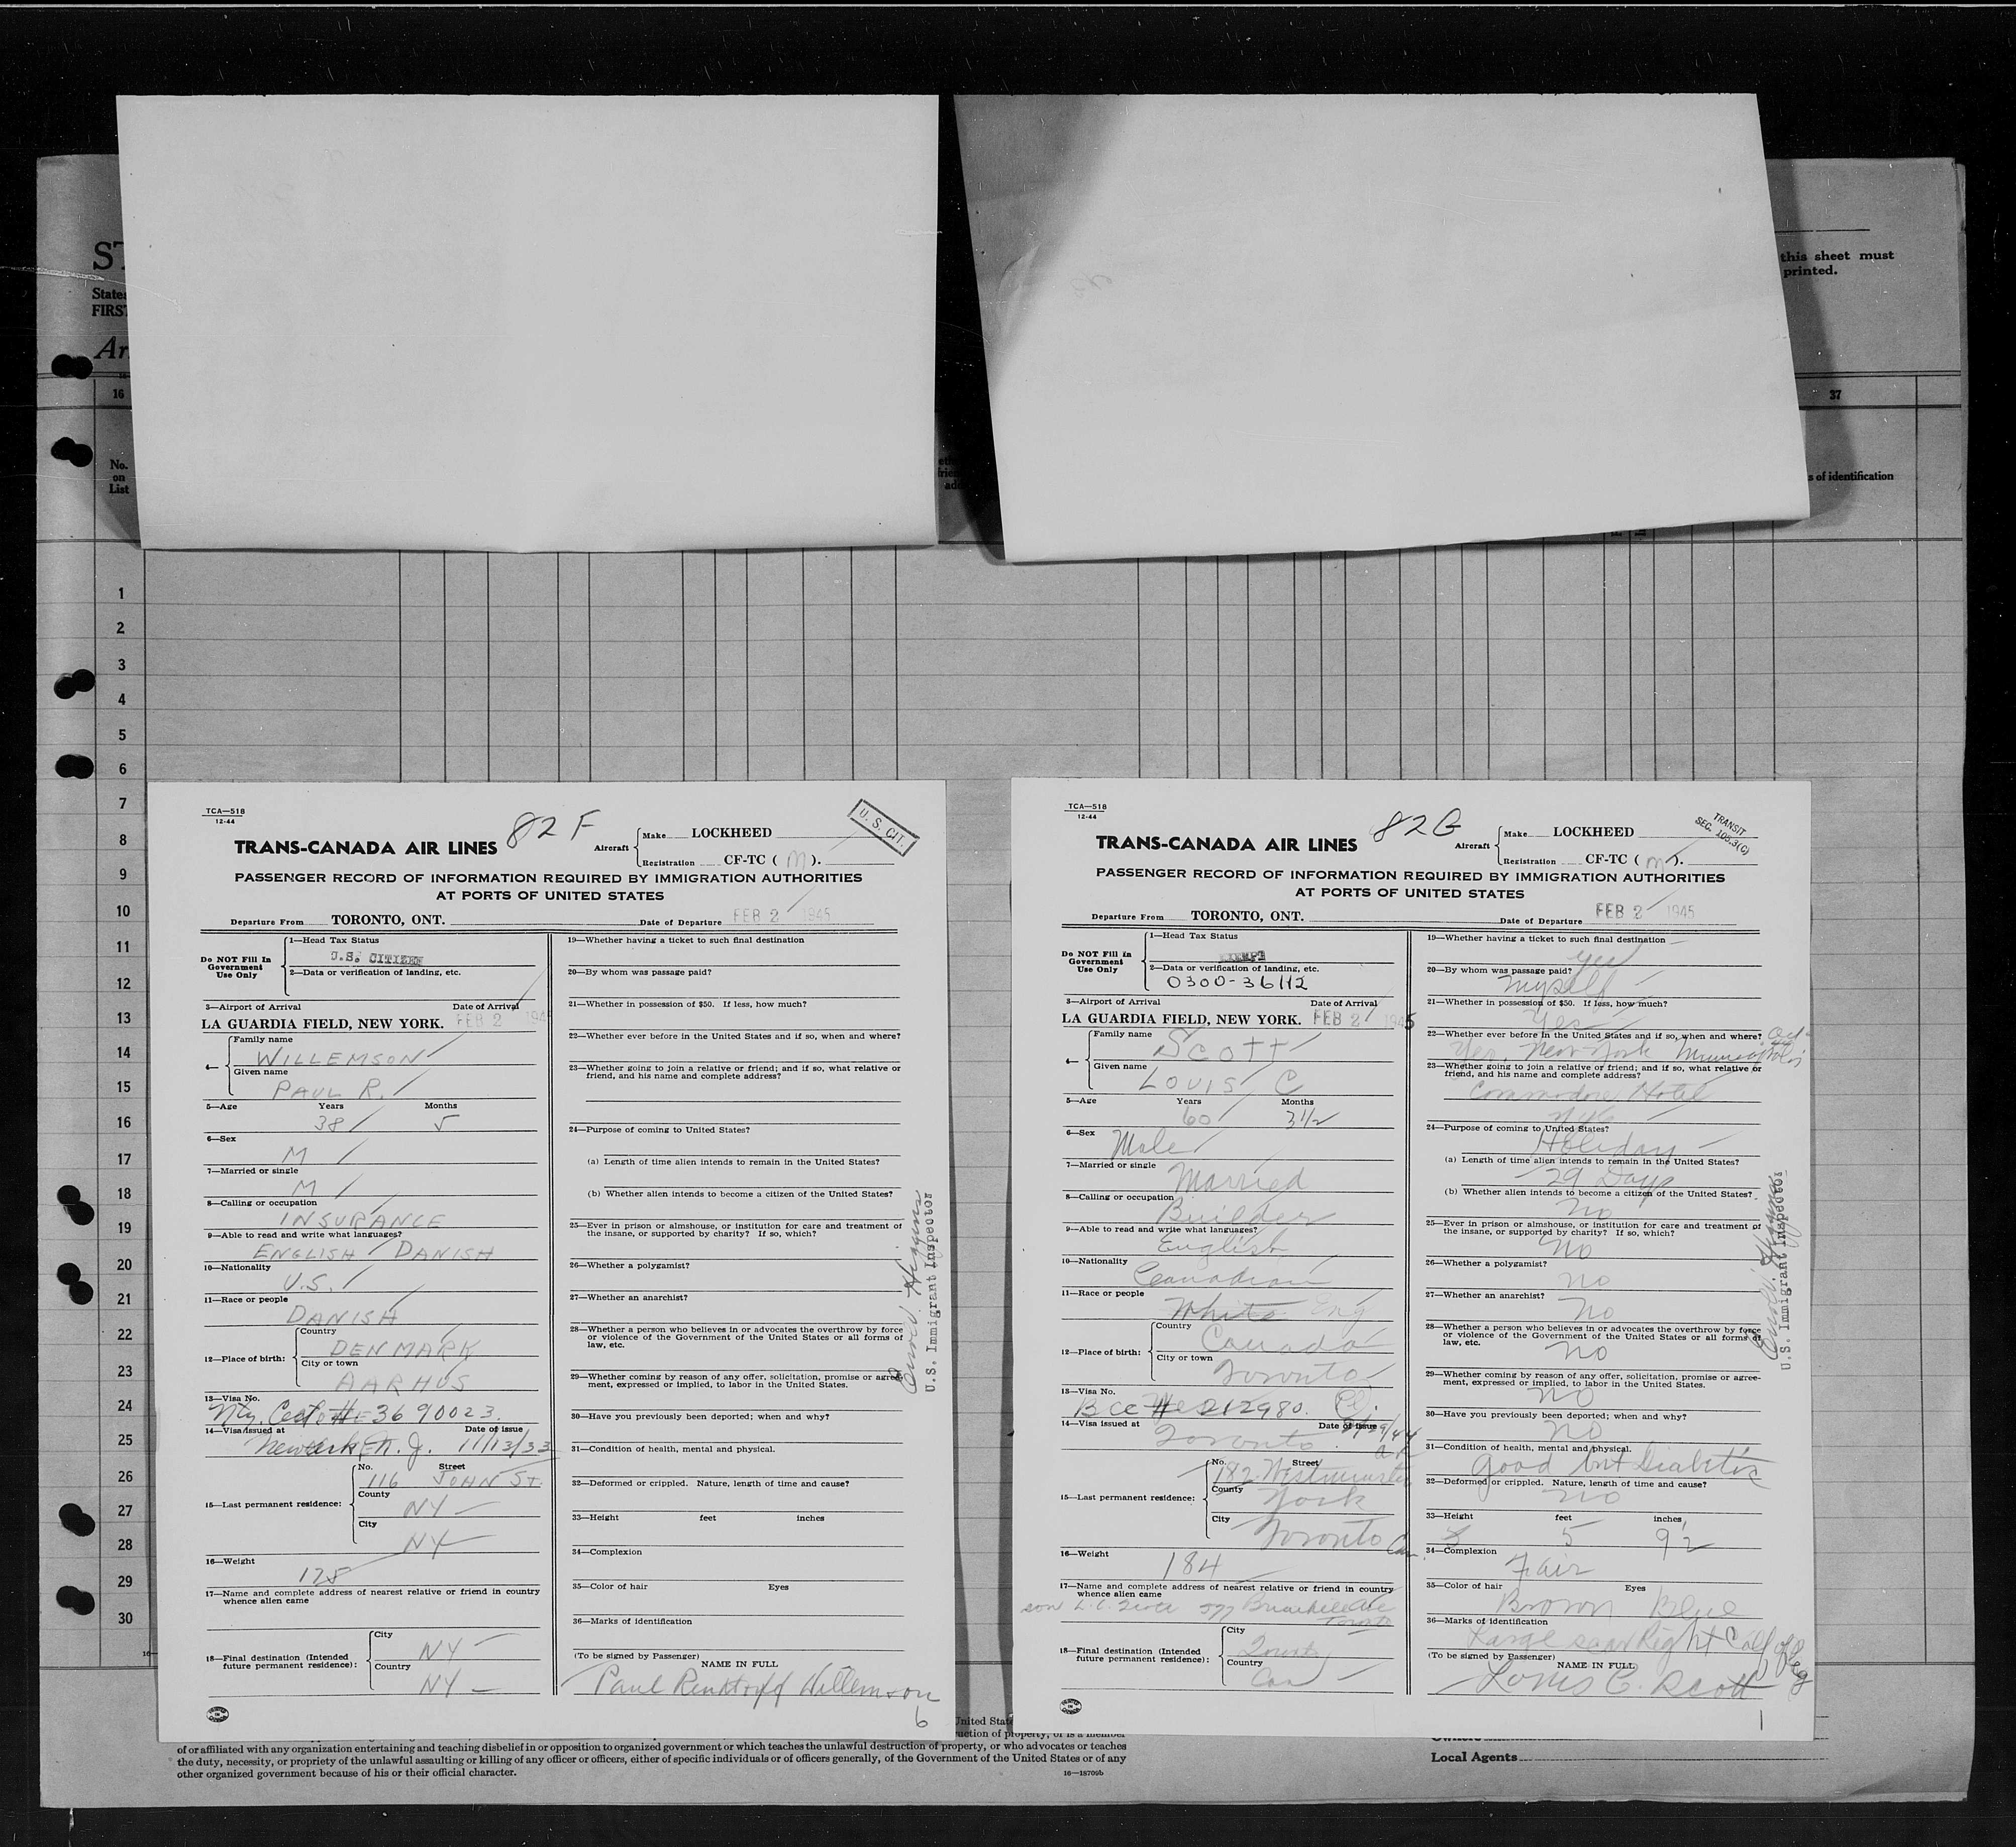 ST
this sheet must
printed.
States
FIRST
Ar
16
37
No.
on
List
s of identification
1
2
3
4
5
6
7
8
9
10
11
12
13
14
15
16
17
18
19
20
21
22
23
24
25
26
27
28
29
30
TCA—518
12-44
82 F
U. S. CIT.
TRANS-CANADA AIR LINES
Aircraft
Make LOCKHEED
Registration CF-TC ( M ).
PASSENGER RECORD OF INFORMATION REQUIRED BY IMMIGRATION AUTHORITIES
AT PORTS OF UNITED STATES
Departure From TORONTO, ONT. Date of Departure FEB 2 1945
Do NOT Fill in
Government
Use Only
1—Head Tax Status
U.S. CITIZEN
2—Data or verification of landing, etc.
3—Airport of Arrival Date of Arrival
LA GUARDIA FIELD, NEW YORK. FEB 2 194
4—
Family name
WILLEMSON
Given name
PAUL R.
5—Age Years Months
38 5
6—Sex
M
7—Married or single
M
8—Calling or occupation
INSURANCE
9—Able to read and write what languages?
ENGLISH DANISH
10—Nationality
U.S.
11—Race or people
DANISH
12—Place of birth:
Country
DENMARK
City or town
AARHUS
13—Visa No.
Nty. Cert. # 3690023.
14—Visa issued at Date of issue
Newark, N. J. 11/13/33
15—Last permanent residence:
No. Street
116 JOHN ST.
County
NY
City
NY
16—Weight
125
17—Name and complete address of nearest relative or friend in country
whence alien came
18—Final destination (Intended
future permanent residence):
City
NY
Country
NY
19—Whether having a ticket to such final destination
20—By whom was passage paid?
21—Whether in possession of $50. If less, how much?
22—Whether ever before in the United States and if so, when and where?
23—Whether going to join a relative or friend; and if so, what relative or
friend, and his name and complete address?
24—Purpose of coming to United States?
(a) Length of time alien intends to remain in the United States?
(b) Whether alien intends to become a citizen of the United States?
25—Ever in prison or almshouse, or institution for care and treatment of
the insane, or supported by charity? If so, which?
26—Whether a polygamist?
27—Whether an anarchist?
28—Whether a person who believes in or advocates the overthrow by force
or violence of the Government of the United States or all forms of
law, etc.
29—Whether coming by reason of any offer, solicitation, promise or agree-
ment, expressed or implied, to labor in the United States.
30—Have you previously been deported; when and why?
31—Condition of health, mental and physical.
32—Deformed or crippled. Nature, length of time and cause?
33—Height feet inches
34—Complexion
35—Color of hair Eyes
36—Marks of identification
(To be signed by Passenger) NAME IN FULL
Paul Willemson
6
U.S. Immigrant Inspector
TCA—518
12-44
82 G
TRANSIT
SEC. 105.3(C)
TRANS-CANADA AIR LINES
Aircraft
Make LOCKHEED
Registration CF-TC ( M ).
PASSENGER RECORD OF INFORMATION REQUIRED BY IMMIGRATION AUTHORITIES
AT PORTS OF UNITED STATES
Departure From TORONTO, ONT. Date of Departure FEB 2 1945
Do NOT Fill in
Government
Use Only
1—Head Tax Status
EXEMPT
2—Data or verification of landing, etc.
0300-36112
3—Airport of Arrival Date of Arrival
LA GUARDIA FIELD, NEW YORK. FEB 2 1945
4—
Family name
SCOTT
Given name
LOUIS C
5—Age Years Months
60 3½
6—Sex
Male
7—Married or single
Married
8—Calling or occupation
Builder
9—Able to read and write what languages?
English
10—Nationality
Canadian
11—Race or people
White Eng
12—Place of birth:
Country
Canada
City or town
Toronto
13—Visa No.
BCC # 212980.
14—Visa issued at Date of issue
Toronto
15—Last permanent residence:
No. Street
182 Westminster
County
York
City
Toronto Can.
16—Weight
184
17—Name and complete address of nearest relative or friend in country
whence alien came
son L.C. Scott 577 Briarhill Ave
Toronto
18—Final destination (Intended
future permanent residence):
City
Toronto
Country
Can
19—Whether having a ticket to such final destination
yes
20—By whom was passage paid?
myself
21—Whether in possession of $50. If less, how much?
Yes
22—Whether ever before in the United States and if so, when and where?
Yes, New York Minneapolis
23—Whether going to join a relative or friend; and if so, what relative or
friend, and his name and complete address?
Commodore Hotel
NYC
24—Purpose of coming to United States?
Holiday
(a) Length of time alien intends to remain in the United States?
29 Days
(b) Whether alien intends to become a citizen of the United States?
No
25—Ever in prison or almshouse, or institution for care and treatment of
the insane, or supported by charity? If so, which?
No
26—Whether a polygamist?
no
27—Whether an anarchist?
No
28—Whether a person who believes in or advocates the overthrow by force
or violence of the Government of the United States or all forms of
law, etc.
no
29—Whether coming by reason of any offer, solicitation, promise or agree-
ment, expressed or implied, to labor in the United States.
NO
30—Have you previously been deported; when and why?
NO
31—Condition of health, mental and physical.
good but Diabetic
32—Deformed or crippled. Nature, length of time and cause?
no
33—Height feet inches
5 9½
34—Complexion
Fair
35—Color of hair Eyes
Brown Blue
36—Marks of identification
Large scar Right Calf of leg
(To be signed by Passenger) NAME IN FULL
Louis C. Scott
1
U.S. Immigrant Inspector
United State
uction of property, or is a member
of or affiliated with any organization entertaining and teaching disbelief in or opposition to organized government or which teaches the unlawful destruction of property, or who advocates or teaches
the duty, necessity, or propriety of the unlawful assaulting or killing of any officer or officers, either of specific individuals or of officers generally, of the Government of the United States or of any
other organized government because of his or their official character.
16—18709b
Owners
Local Agents